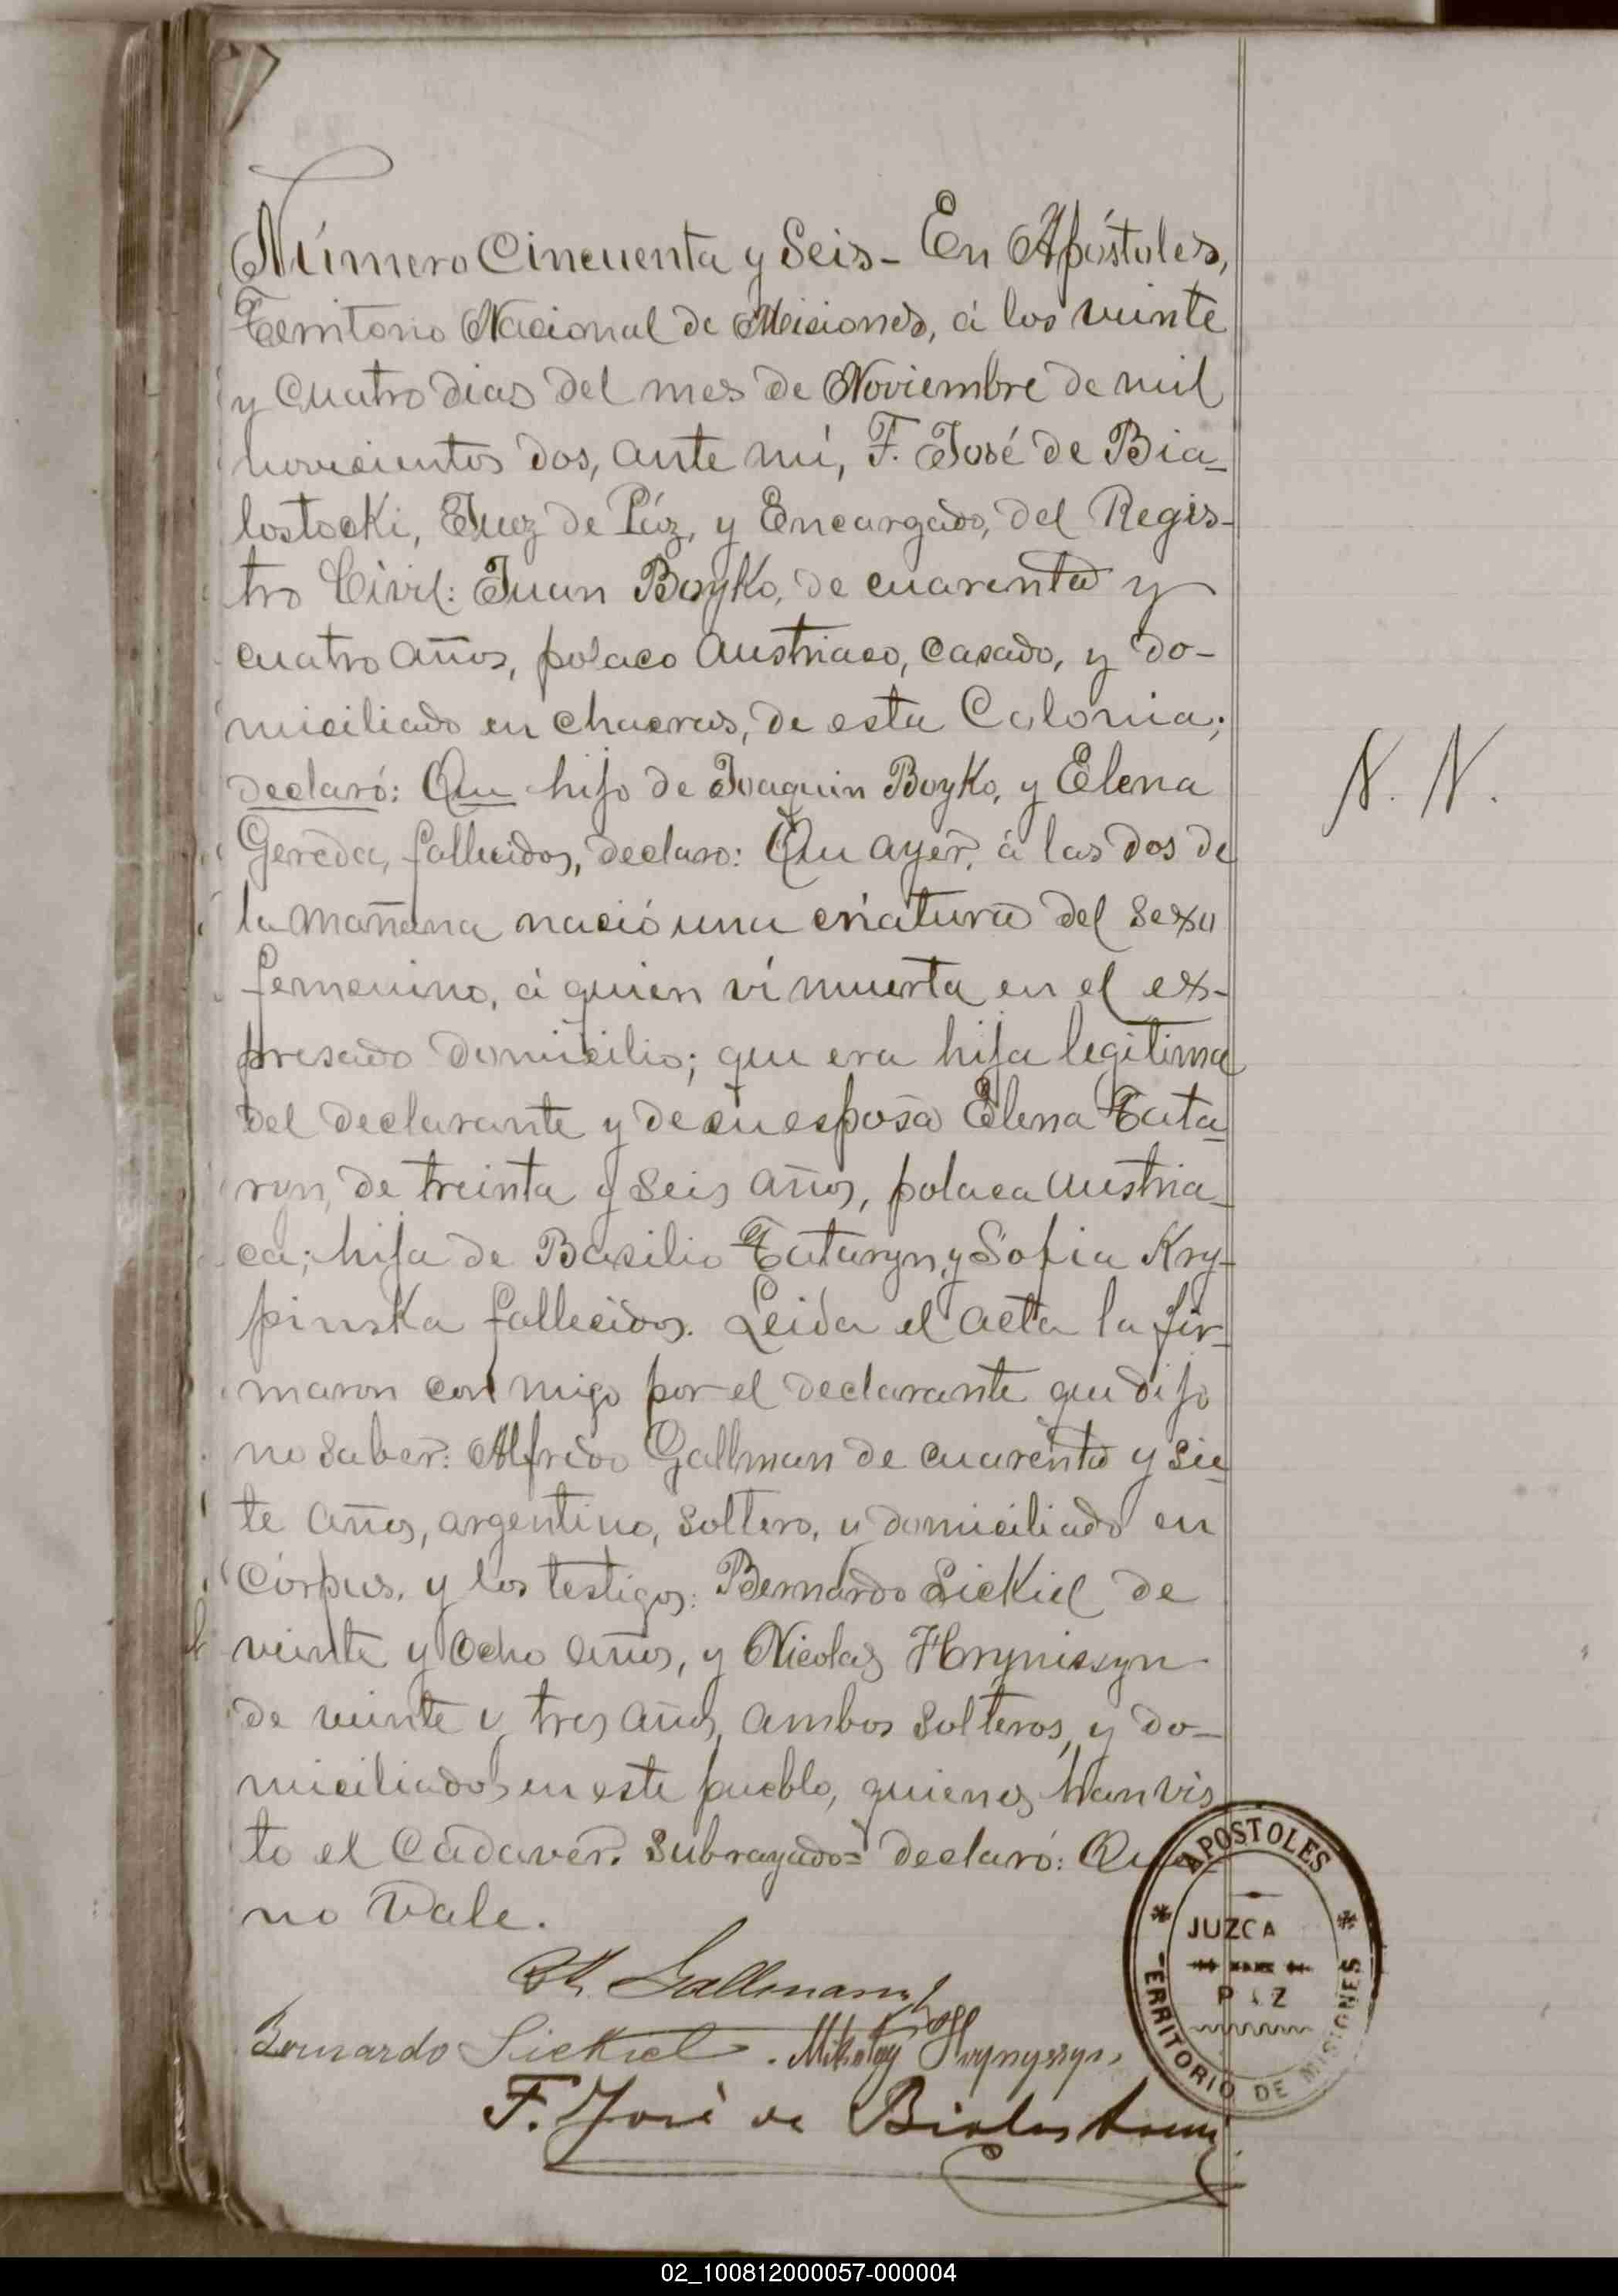 Número Cincuenta y Seis - En Apóstoles,
Territorio Nacional de Misiones, á los veinte
y cuatro dias del mes de Noviembre de mil
novecientos dos, ante mí, F. José de Bia-
lostocki, Juez de Páz, y Encargado, del Regis-
tro Civil: Juan Boyko, de cuarenta y
cuatro años, polaco austriaco, casado, y do-
miciliado en chacras, de esta Colonia;
declaró: Que hijo de Joaquin Boyko, y Elena
Gereda, fallecidos, declaro: Que ayer, á las dos de
la mañana nació una criatura del sexo
femenino, á quien ví muerta en el ex-
presado domicilio; que era hija legítima
del declarante y de su esposa Elena Tata-
ryn, de treinta y seis años, polaca austria-
ca; hija de Basilio Tataryn, y Sofia Kry-
pinska fallecidos. Leida el acta la fir-
maron con migo por el declarante que dijo
no saber: Alfredo Gallman de cuarenta y sie-
te años, argentino, soltero, y domiciliado en
Córpus, y los testigos: Bernardo Siekiel de
veinte y ocho años, y Nicolas Hryniszyn
de veinte y tres años, ambos solteros, y do-
miciliados en este pueblo, quienes han vis
to el cadaver. Subrayado = declaró: Que
no vale.
N. N.
Gallmann
Bernardo Siekiel. Mikołay Hrynyszyn
F. José de Bialostocki
APOSTOLES
JUZGA
PAZ
TERRITORIO DE MISIONES
02_100812000057-000004